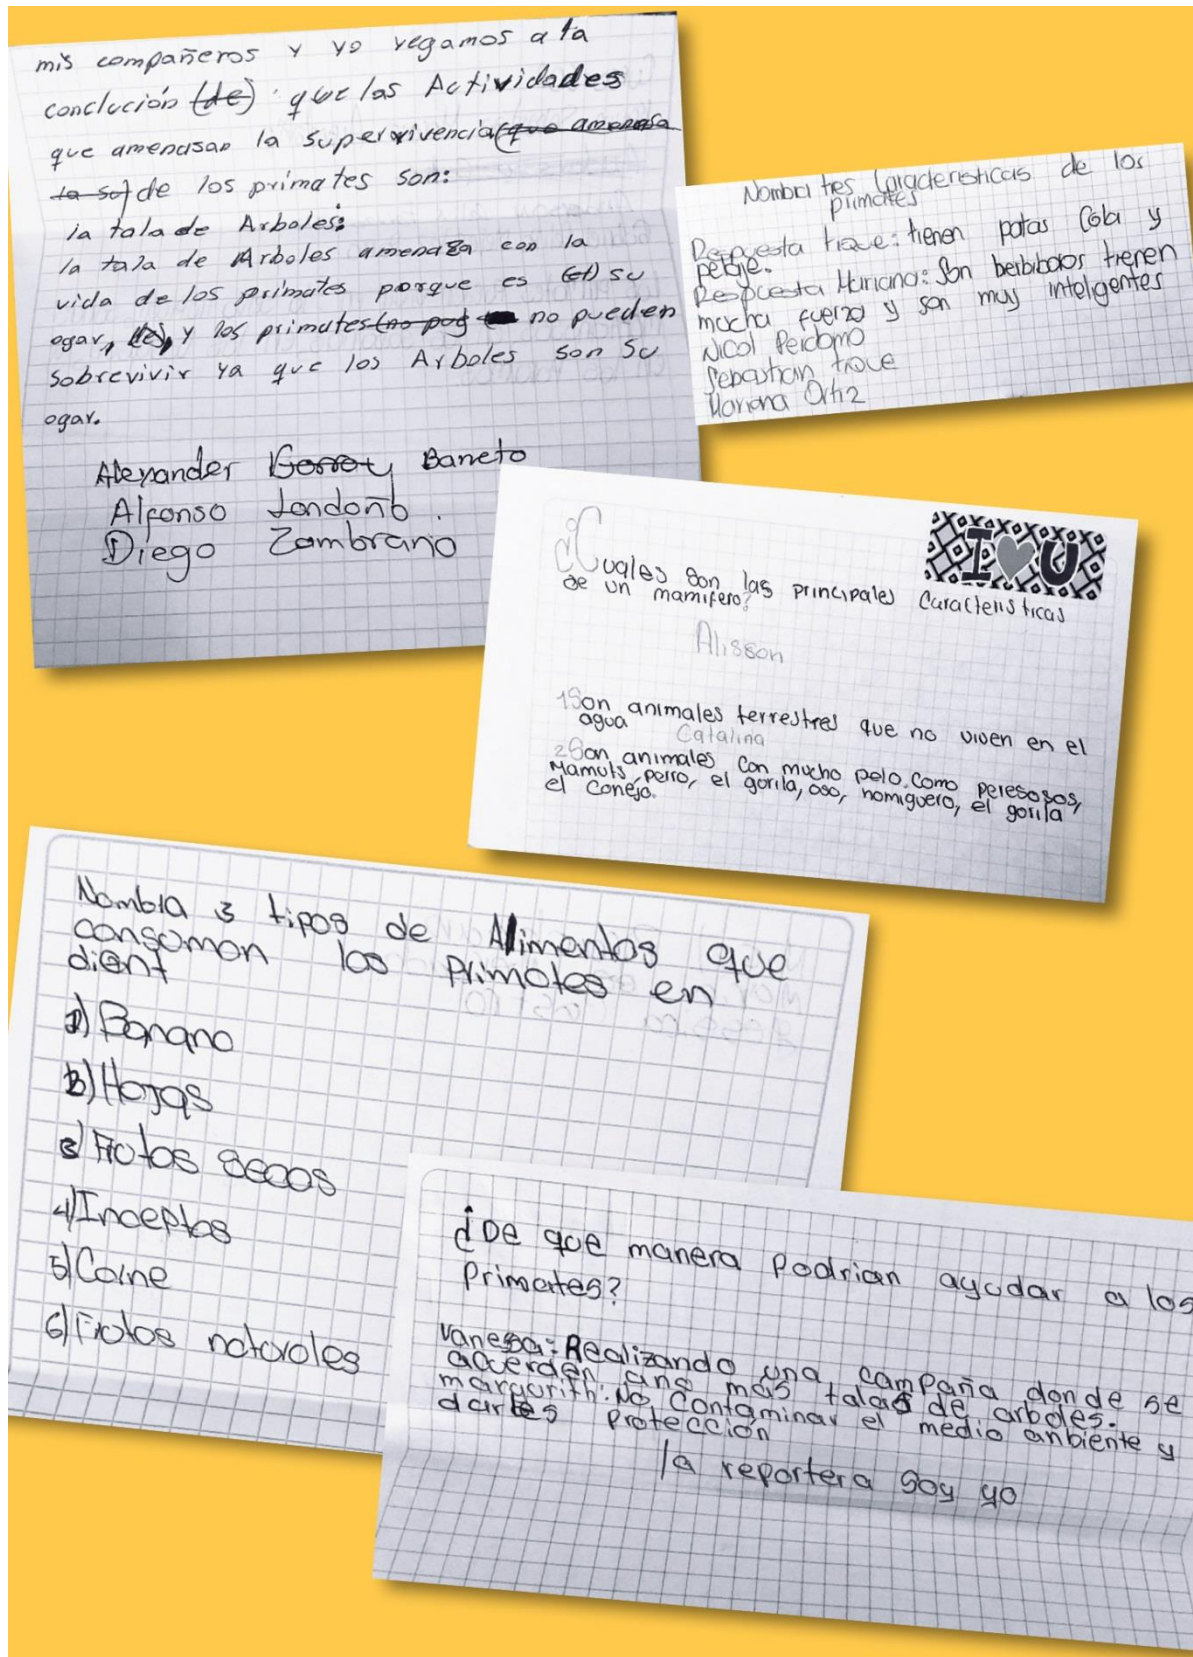 mis compañeros y yo vegamos a la
conclución (de) que las Actividades
que amenasan la supervivencia (que amenasa
la so) de los primates son:
la tala de Arboles:
la tala de Arboles amenaza con la
vida de los primates porque es (El) su
ogar, y los primates (no pog no pueden
sobrevivir ya que los Arboles son su
ogar.
Alexander Baneto
Alfonso Londoño.
Diego Zambrano
Nombra tres Caracteristicas de los
primates
Respuesta tique: tienen patas Cola y
pelaje.
Respuesta Mariana: Son berbiboros tienen
mucha fuerza y son muy inteligentes
Nicol Perdomo
Sebastian tique
Mariana Ortiz
I U
¿Cuales son las principales Caracteristicas
de un mamifero?
Alisson
1 Son animales terrestres que no viven en el
agua
Catalina
2 Son animales con mucho pelo. Como peresosos,
Mamuts, perro, el gorila, oso, homiguero, el gorila
el conejo.
Nombra 3 tipos de Alimentos que
consumon los primates en
dient
1) Banano
2) Hojas
3) Frutos secos
4) Inceptos
5) Carne
6) Frutos naturales
¿De que manera podrian ayudar a los
Primates?
Vanessa: Realizando una campaña donde se
acuerden una mas talas de arboles.
margarith: No Contaminar el medio anbiente y
darles protección
la reportera soy yo